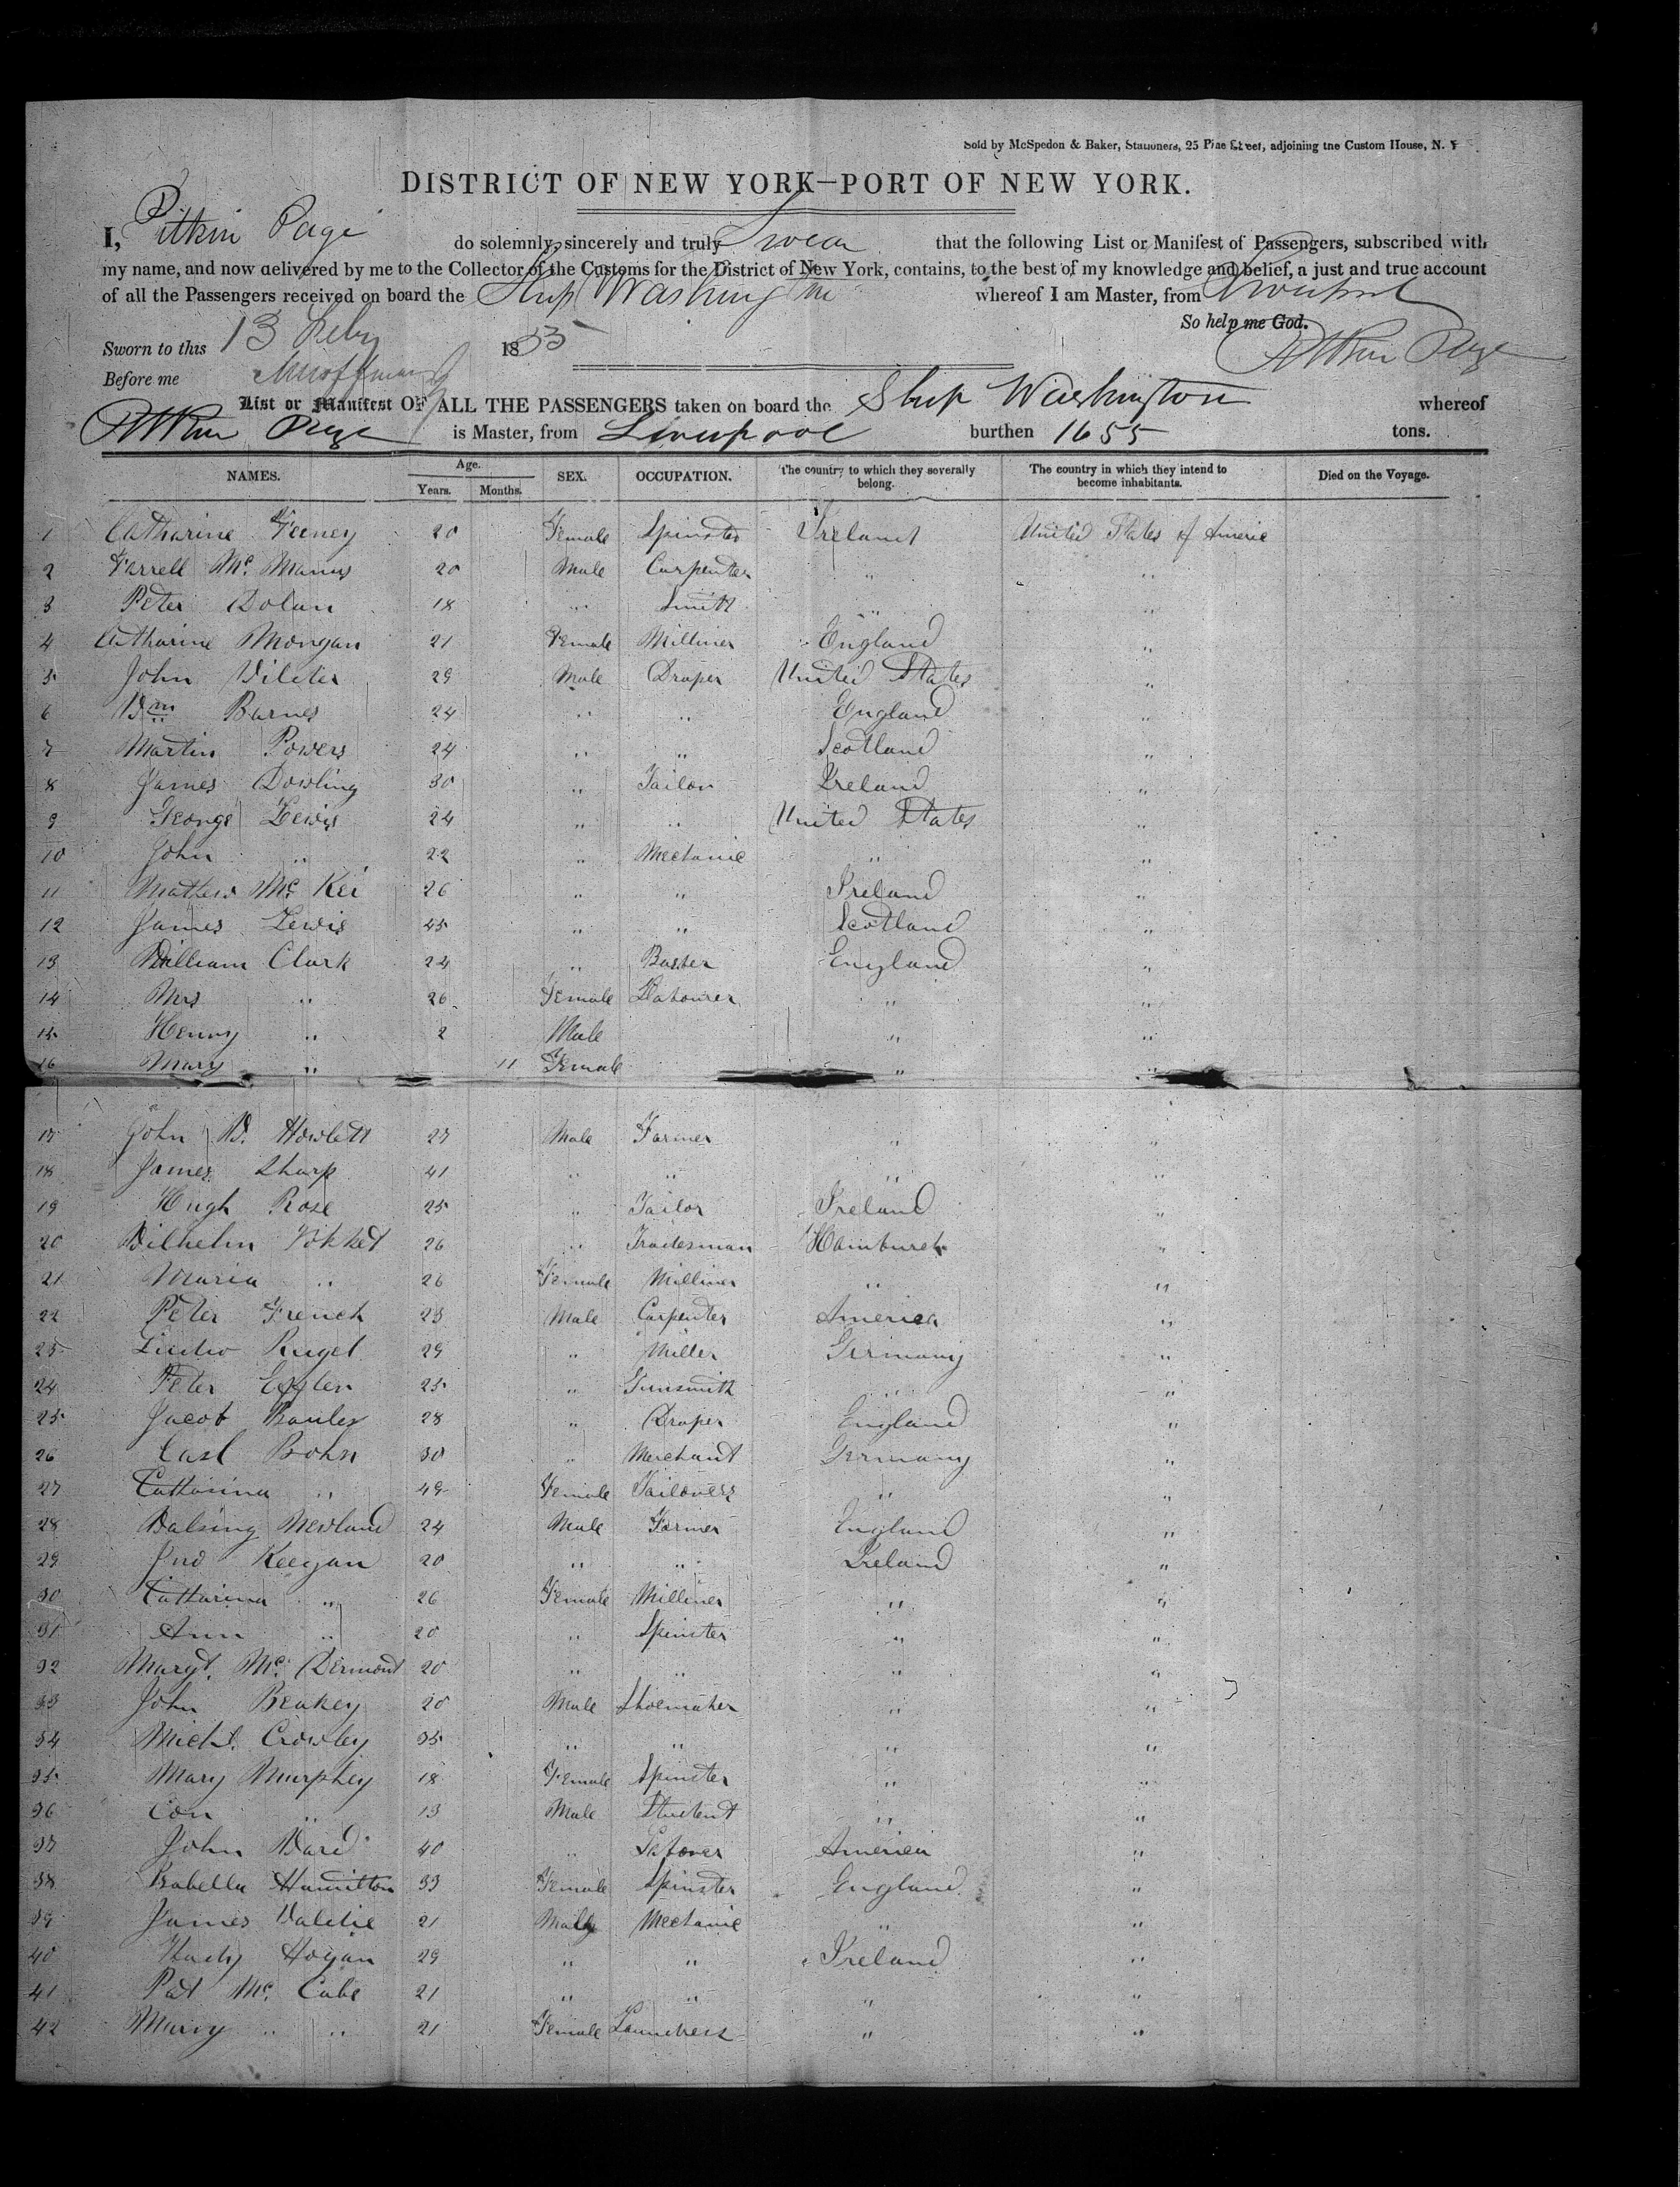 Sold by McSpedon & Baker, Stationers, 25 Pine Street, adjoining the Custom House, N. Y
DISTRICT OF NEW YORK—PORT OF NEW YORK.
I, Pitkin Page do solemnly, sincerely and truly Swear that the following List or Manifest of Passengers, subscribed with
my name, and now delivered by me to the Collector of the Customs for the District of New York, contains, to the best of my knowledge and belief, a just and true account
of all the Passengers received on board the Ship Washington whereof I am Master, from Liverpool
So help me God.
Sworn to this 13 Feby 1855 Pitkin Page
Before me
List or Manifest OF ALL THE PASSENGERS taken on board the Ship Washington whereof
Pitkin Page is Master, from Liverpool burthen 1655 tons.
NAMES. Age. Years. Months. SEX. OCCUPATION. The country to which they severally belong. The country in which they intend to become inhabitants. Died on the Voyage.
1 Catharine Feeney 20 Female Spinster Ireland United States of Americ
2 Farrell Mc. Manus 20 Male Carpenter " "
3 Peter Dolan 18 " Smith " "
4 Catharine Mongan 21 Female Milliner England "
5 John 29 Male Draper United States "
6 Wm Barnes 24 " " England "
7 Martin Powers 24 " " Scotland "
8 James Dowling 30 " Tailor Ireland "
9 George Lewis 24 " " United States "
10 John " 22 " Mechanic " "
11 Mathew Mc. Kei 26 " " Ireland "
12 James Lewis 45 " " Scotland "
13 William Clark 24 " England "
14 Mrs " 26 Female Labourer " "
15 Henry " 2 Male " "
16 Mary " 11 Female " "
17 John W. Howlett 27 Male Farmer " "
18 James Sharp 41 " " " "
19 Hugh Rose 25 " Tailor Ireland "
20 Wilhelm 26 " Tradesman Hamburch "
21 Maria " 26 Female Milliner " "
22 Peter French 23 Male Carpenter America "
23 Rugel 29 " Miller Germany "
24 Peter Eggler 25 " Gunsmith " "
25 Jacob 28 " Draper England "
26 Carl Bohn 30 " Merchant Germany "
27 Catharina " 49 Female Tailoress " "
28 Newland 24 Male Farmer England "
29 Jno Keegan 20 " " Ireland "
30 Catharina " 26 Female Milliner " "
31 Ann " 20 " Spinster " "
32 Margt. Mc. Dermont 20 " " " "
33 John Beakey 20 Male Shoemaker " "
34 Michl. Crowley 35 " " " "
35 Mary Murphey 18 Female Spinster " "
36 Con " 13 Male Student " "
37 John Ward 40 " Labourer America "
38 Isabella Hamilton 33 Female Spinster England "
39 James 21 Male Mechanic " "
40 Hogan 29 " " Ireland "
41 Pat Mc. Cabe 21 " " " "
42 Mary " " 21 Female Laundress " "